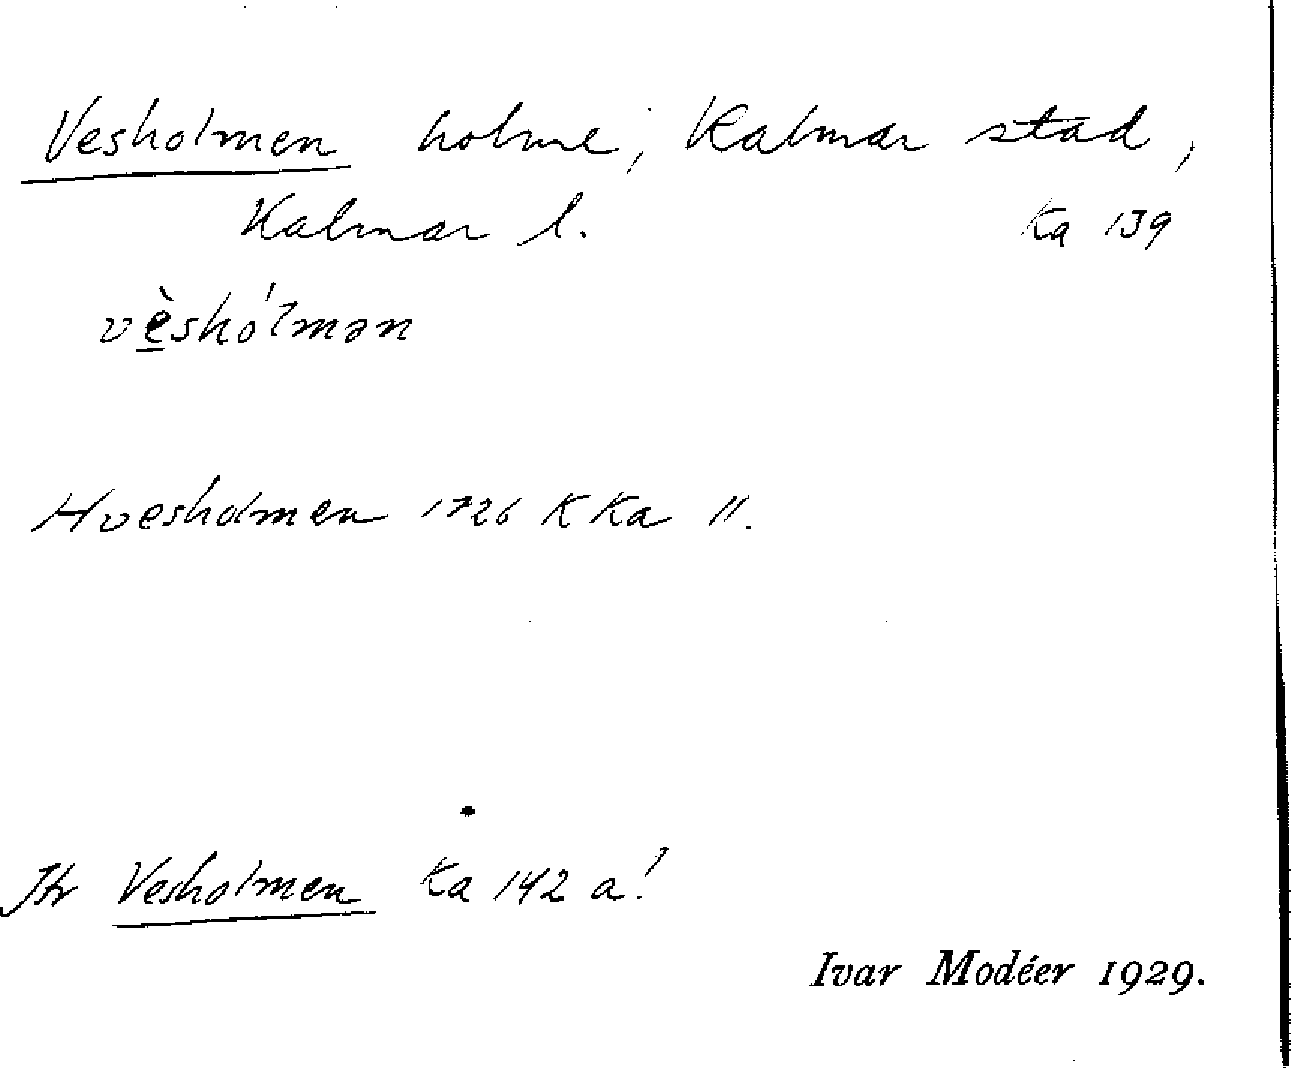 Vesholmen holme, Kalmar stad,
Kalmar l. Ka 139
vèshólmən
Hvesholmen 1726 K Ka 11.
Jfr Vesholmen Ka 142 a!
Ivar Modéer 1929.